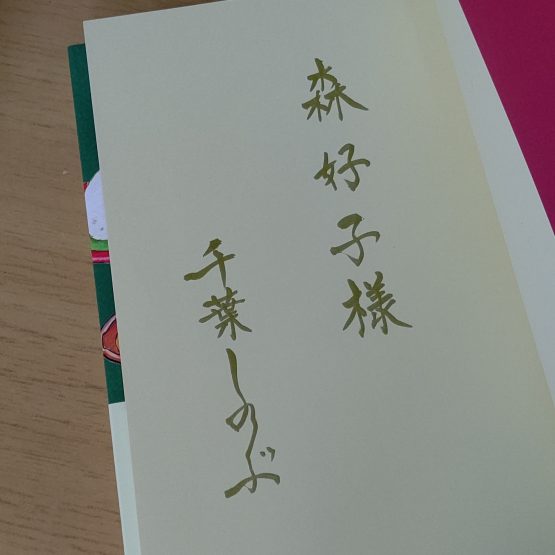 森好子様
千葉しのぶ